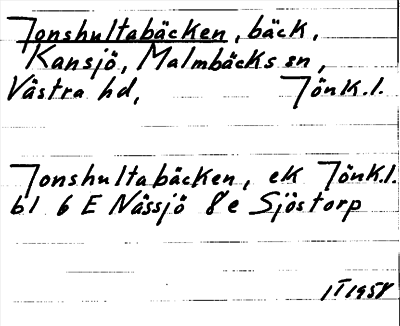 Jonshultabäcken, bäck,
Kansjö, Malmbäcks sn,
Västra hd, Jönk.l.
Jonshultabäcken, ek Jönk.l.
bl 6 E Nässjö 8e Sjöstorp
1T1958